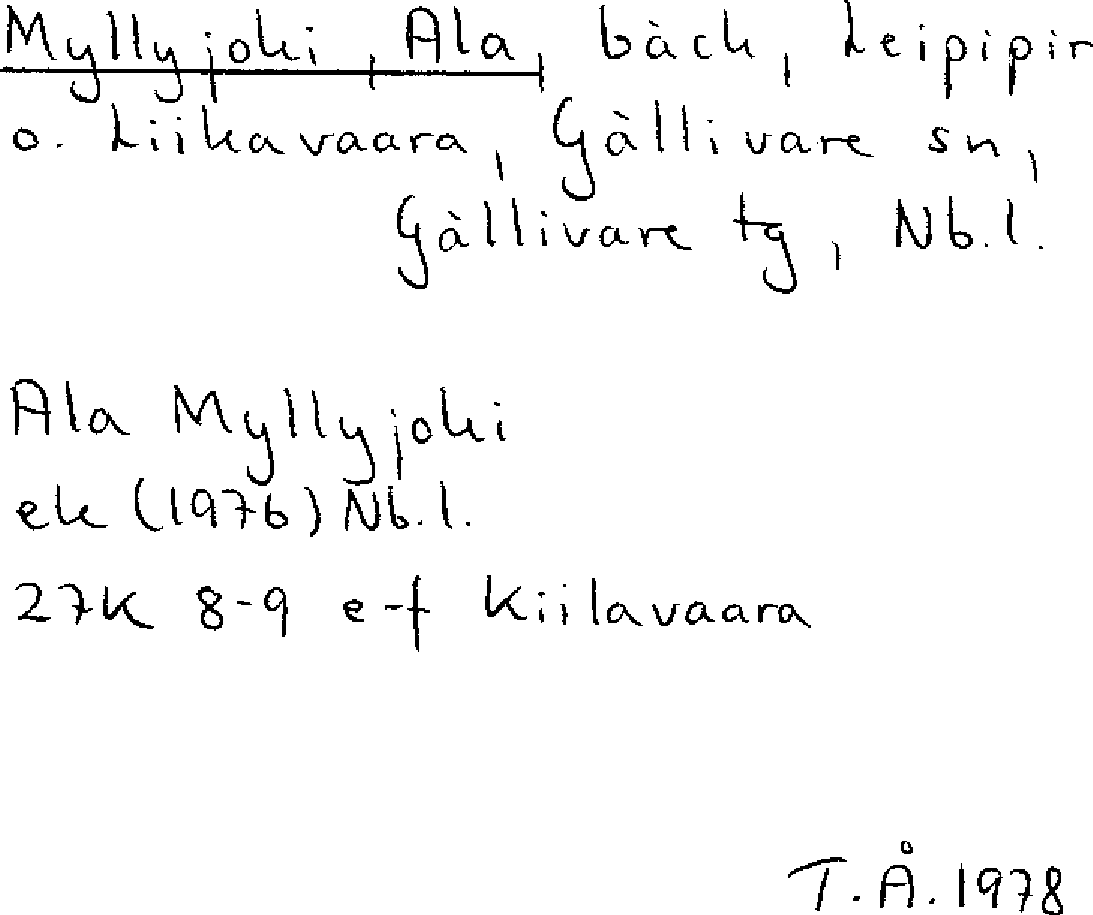 Myllyjoki, Ala, bäck, Leipipir
o. Liikavaara, Gällivare sn,
Gällivare tg, Nb.l.
Ala Myllyjoki
ek (1976) Nb.l.
27K 8-9 e-f Kiilavaara
T.Å. 1978